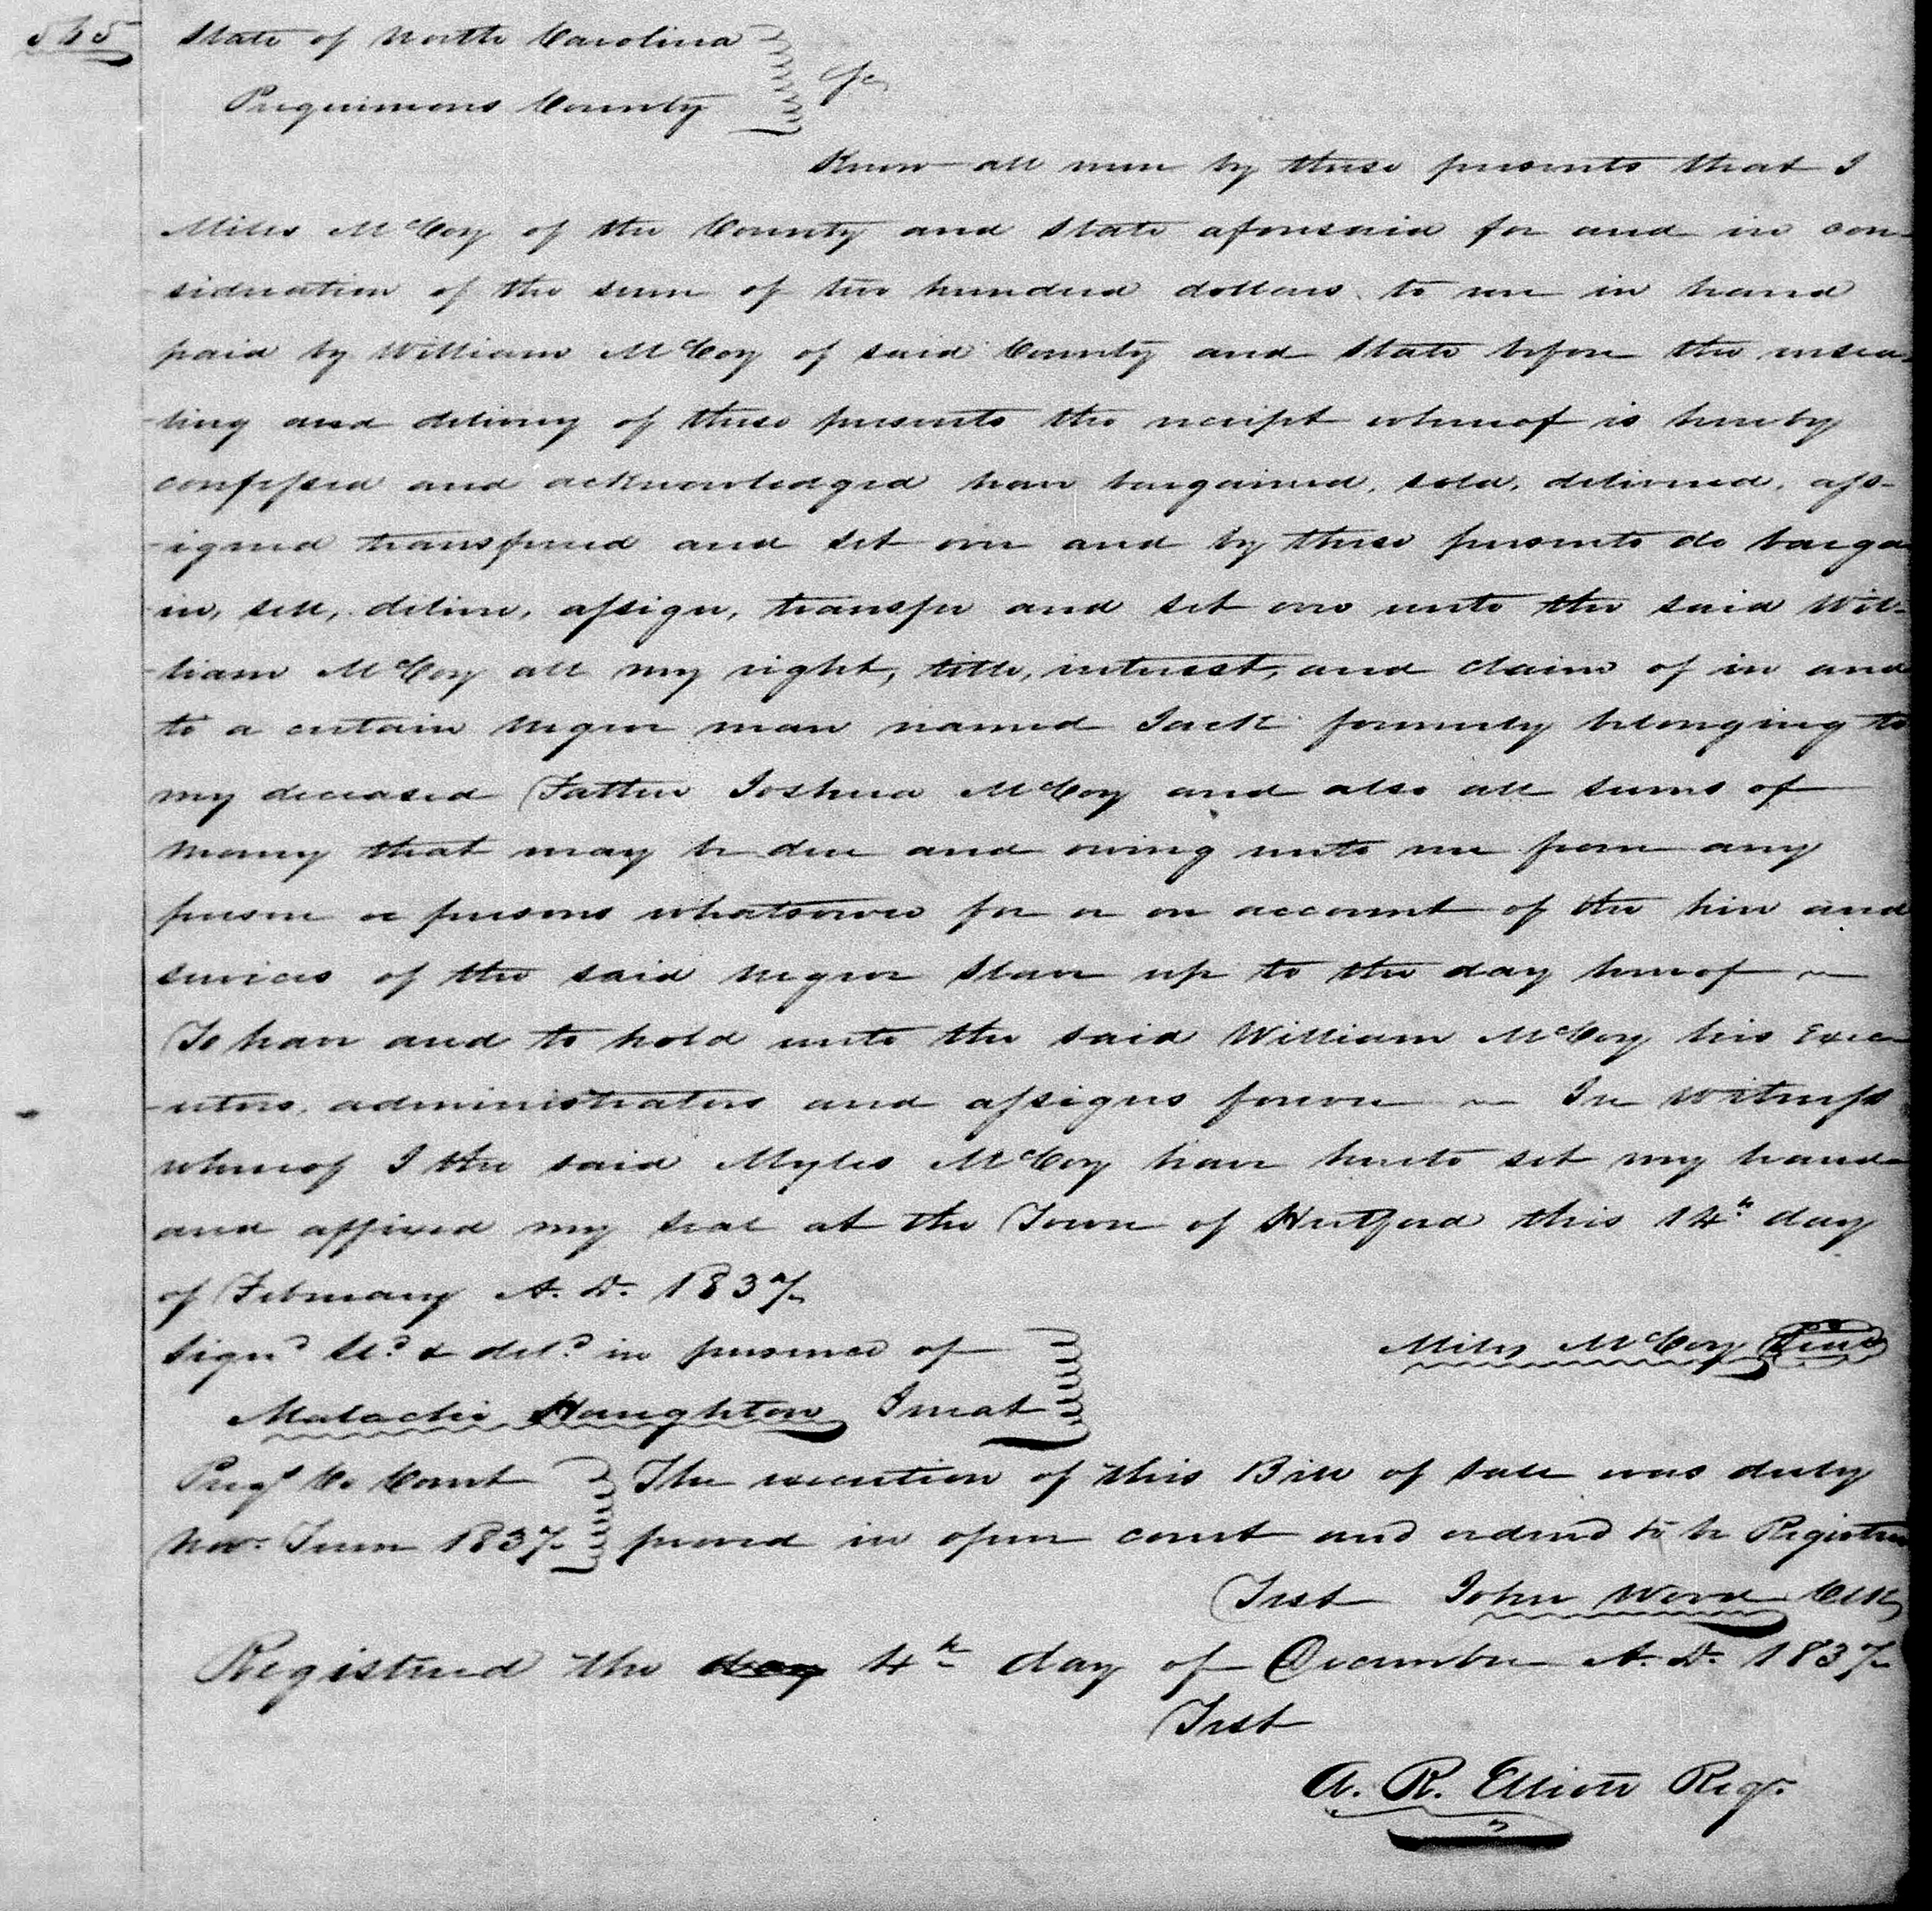 565
State of North Carolina
Perquimons County } &c
Know all men by these presents that I
Miles McCoy of the County and State aforesaid for and in con-
-sideration of the sum of two hundred dollars to me in hand
paid by William McCoy of said County and State before the ensea-
-ling and delivery of these presents the receipt whereof is hereby
confessed and acknowledged have bargained, sold, delivered, ass-
-igned transfered and set over and by these presents do barga-
-in, sell, deliver, assign, transfer and set over unto the said Wil-
-liam McCoy all my right, title, interest, and claim of in and
to a certain negro man named Jack formerly belonging to
my deceased Father Joshua McCoy and also all sums of
money that may be due and owing unto me from any
person or persons whatsoever for or on account of the hire and
services of the said negro slave up to the day hereof ~
To have and to hold unto the said William McCoy his Exec-
-utors, administrators and assigns forever ~ In witness
whereof I the said Myles McCoy have hereto set my hand
and affixed my seal at the Town of Hertford this 14th day
of February A. D. 1837.
Signd Sld & deld in presence of } Miles McCoy Seal
Malachi Haughton Jurat
Perqs Co Court } The execution of this Bill of sale was duly
Nov. Term 1837 } proved in open court and ordered to be Registered
Test John Wood Clk
Registered the day 4th day of December A. D. 1837
Test
A. R. Elliott Regr.